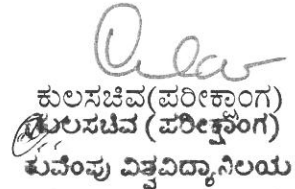 ಕುಲಸಚಿವ(ಪರೀಕ್ಷಾಂಗ)
ಕುಲಸಚಿವ (ಪರೀಕ್ಷಾಂಗ)
ಕುವೆಂಪು ವಿಶ್ವವಿದ್ಯಾನಿಲಯ